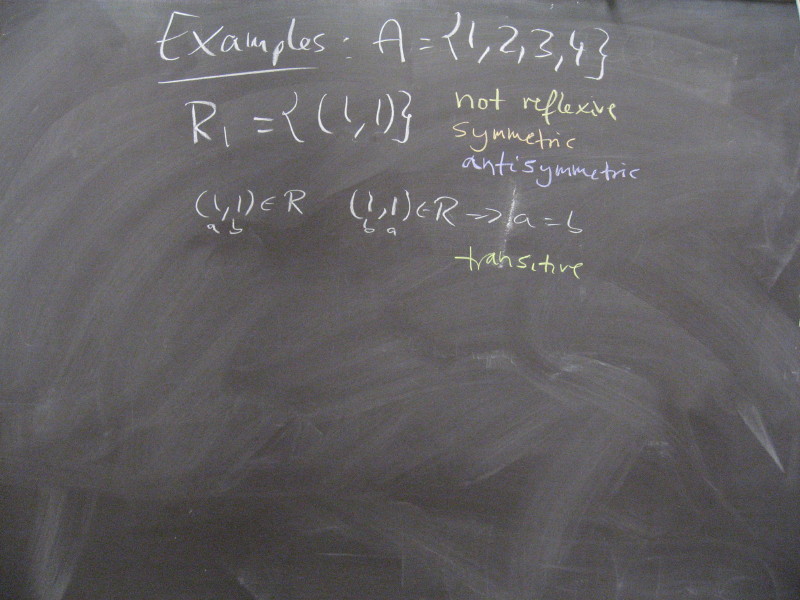 Examples: A = {1,2,3,4}
R1 = {(1,1)}
not reflexive
symmetric
antisymmetric
(1,1) ∈ R (1,1) ∈ R => a = b
a b b a
transitive